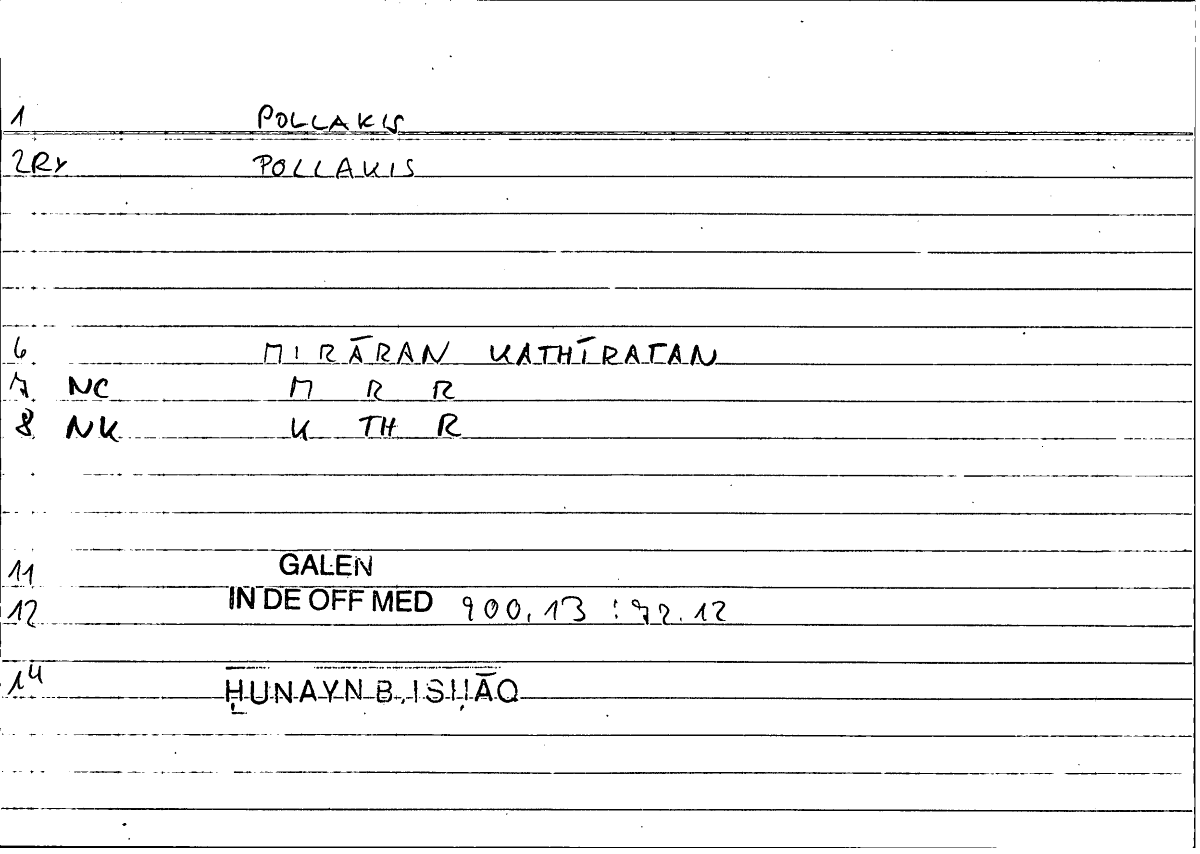 1 POLLAKIS
2RY POLLAKIS
6 MIRĀRAN KATHĪRATAN
7 NC M R R
8 NK K TH R
11 GALEN
12 IN DE OFF MED 900.13 : 72.12
14 ḤUNAYN B. ISḤĀQ